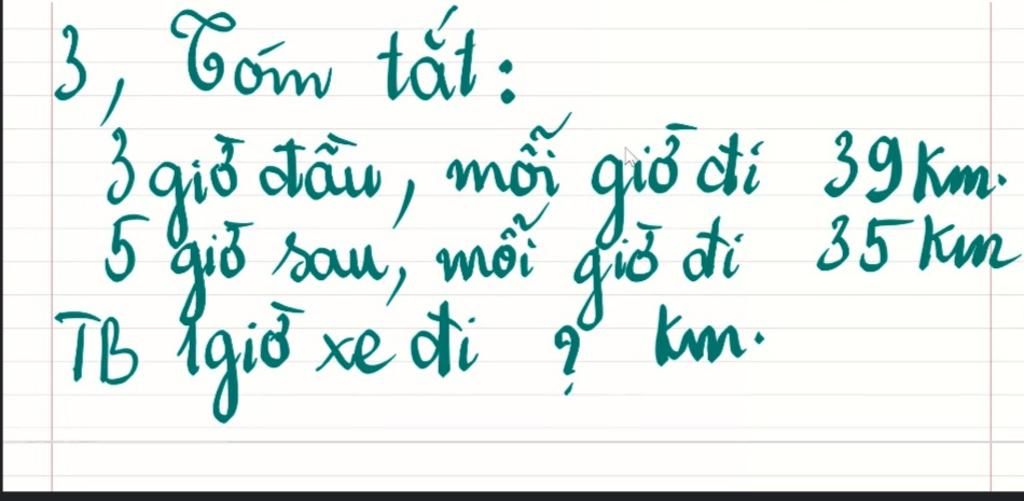 3, Tóm tắt:
3 giờ đầu, mỗi giờ đi 39 km.
5 giờ sau, mỗi giờ đi 35 km
TB 1 giờ xe đi ? km.